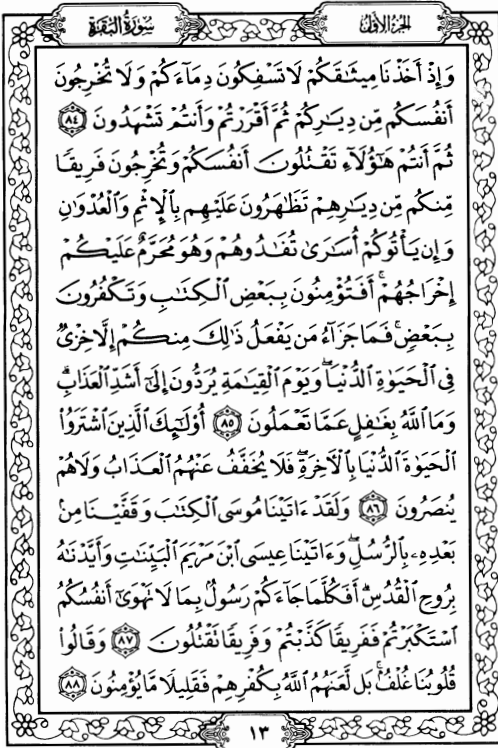 سُورَةُ البَقَرَةِ الجُزءُ الأوَّلُ
وَإِذْ أَخَذْنَا مِيثَٰقَكُمْ لَا تَسْفِكُونَ دِمَآءَكُمْ وَلَا تُخْرِجُونَ
أَنفُسَكُم مِّن دِيَٰرِكُمْ ثُمَّ أَقْرَرْتُمْ وَأَنتُمْ تَشْهَدُونَ ٨٤
ثُمَّ أَنتُمْ هَٰٓؤُلَآءِ تَقْتُلُونَ أَنفُسَكُمْ وَتُخْرِجُونَ فَرِيقًا
مِّنكُم مِّن دِيَٰرِهِمْ تَظَٰهَرُونَ عَلَيْهِم بِٱلْإِثْمِ وَٱلْعُدْوَٰنِ
وَإِن يَأْتُوكُمْ أُسَٰرَىٰ تُفَٰدُوهُمْ وَهُوَ مُحَرَّمٌ عَلَيْكُمْ
إِخْرَاجُهُمْ ۚ أَفَتُؤْمِنُونَ بِبَعْضِ ٱلْكِتَٰبِ وَتَكْفُرُونَ
بِبَعْضٍ ۚ فَمَا جَزَآءُ مَن يَفْعَلُ ذَٰلِكَ مِنكُمْ إِلَّا خِزْىٌ
فِى ٱلْحَيَوٰةِ ٱلدُّنْيَا ۖ وَيَوْمَ ٱلْقِيَٰمَةِ يُرَدُّونَ إِلَىٰٓ أَشَدِّ ٱلْعَذَابِ ۗ
وَمَا ٱللَّهُ بِغَٰفِلٍ عَمَّا تَعْمَلُونَ ٨٥ أُو۟لَٰٓئِكَ ٱلَّذِينَ ٱشْتَرَوُا۟
ٱلْحَيَوٰةَ ٱلدُّنْيَا بِٱلْءَاخِرَةِ ۖ فَلَا يُخَفَّفُ عَنْهُمُ ٱلْعَذَابُ وَلَا هُمْ
يُنصَرُونَ ٨٦ وَلَقَدْ ءَاتَيْنَا مُوسَى ٱلْكِتَٰبَ وَقَفَّيْنَا مِنۢ
بَعْدِهِۦ بِٱلرُّسُلِ ۖ وَءَاتَيْنَا عِيسَى ٱبْنَ مَرْيَمَ ٱلْبَيِّنَٰتِ وَأَيَّدْنَٰهُ
بِرُوحِ ٱلْقُدُسِ ۗ أَفَكُلَّمَا جَآءَكُمْ رَسُولٌۢ بِمَا لَا تَهْوَىٰٓ أَنفُسُكُمُ
ٱسْتَكْبَرْتُمْ فَفَرِيقًا كَذَّبْتُمْ وَفَرِيقًا تَقْتُلُونَ ٨٧ وَقَالُوا۟
قُلُوبُنَا غُلْفٌۢ ۚ بَل لَّعَنَهُمُ ٱللَّهُ بِكُفْرِهِمْ فَقَلِيلًا مَّا يُؤْمِنُونَ ٨٨
١٣